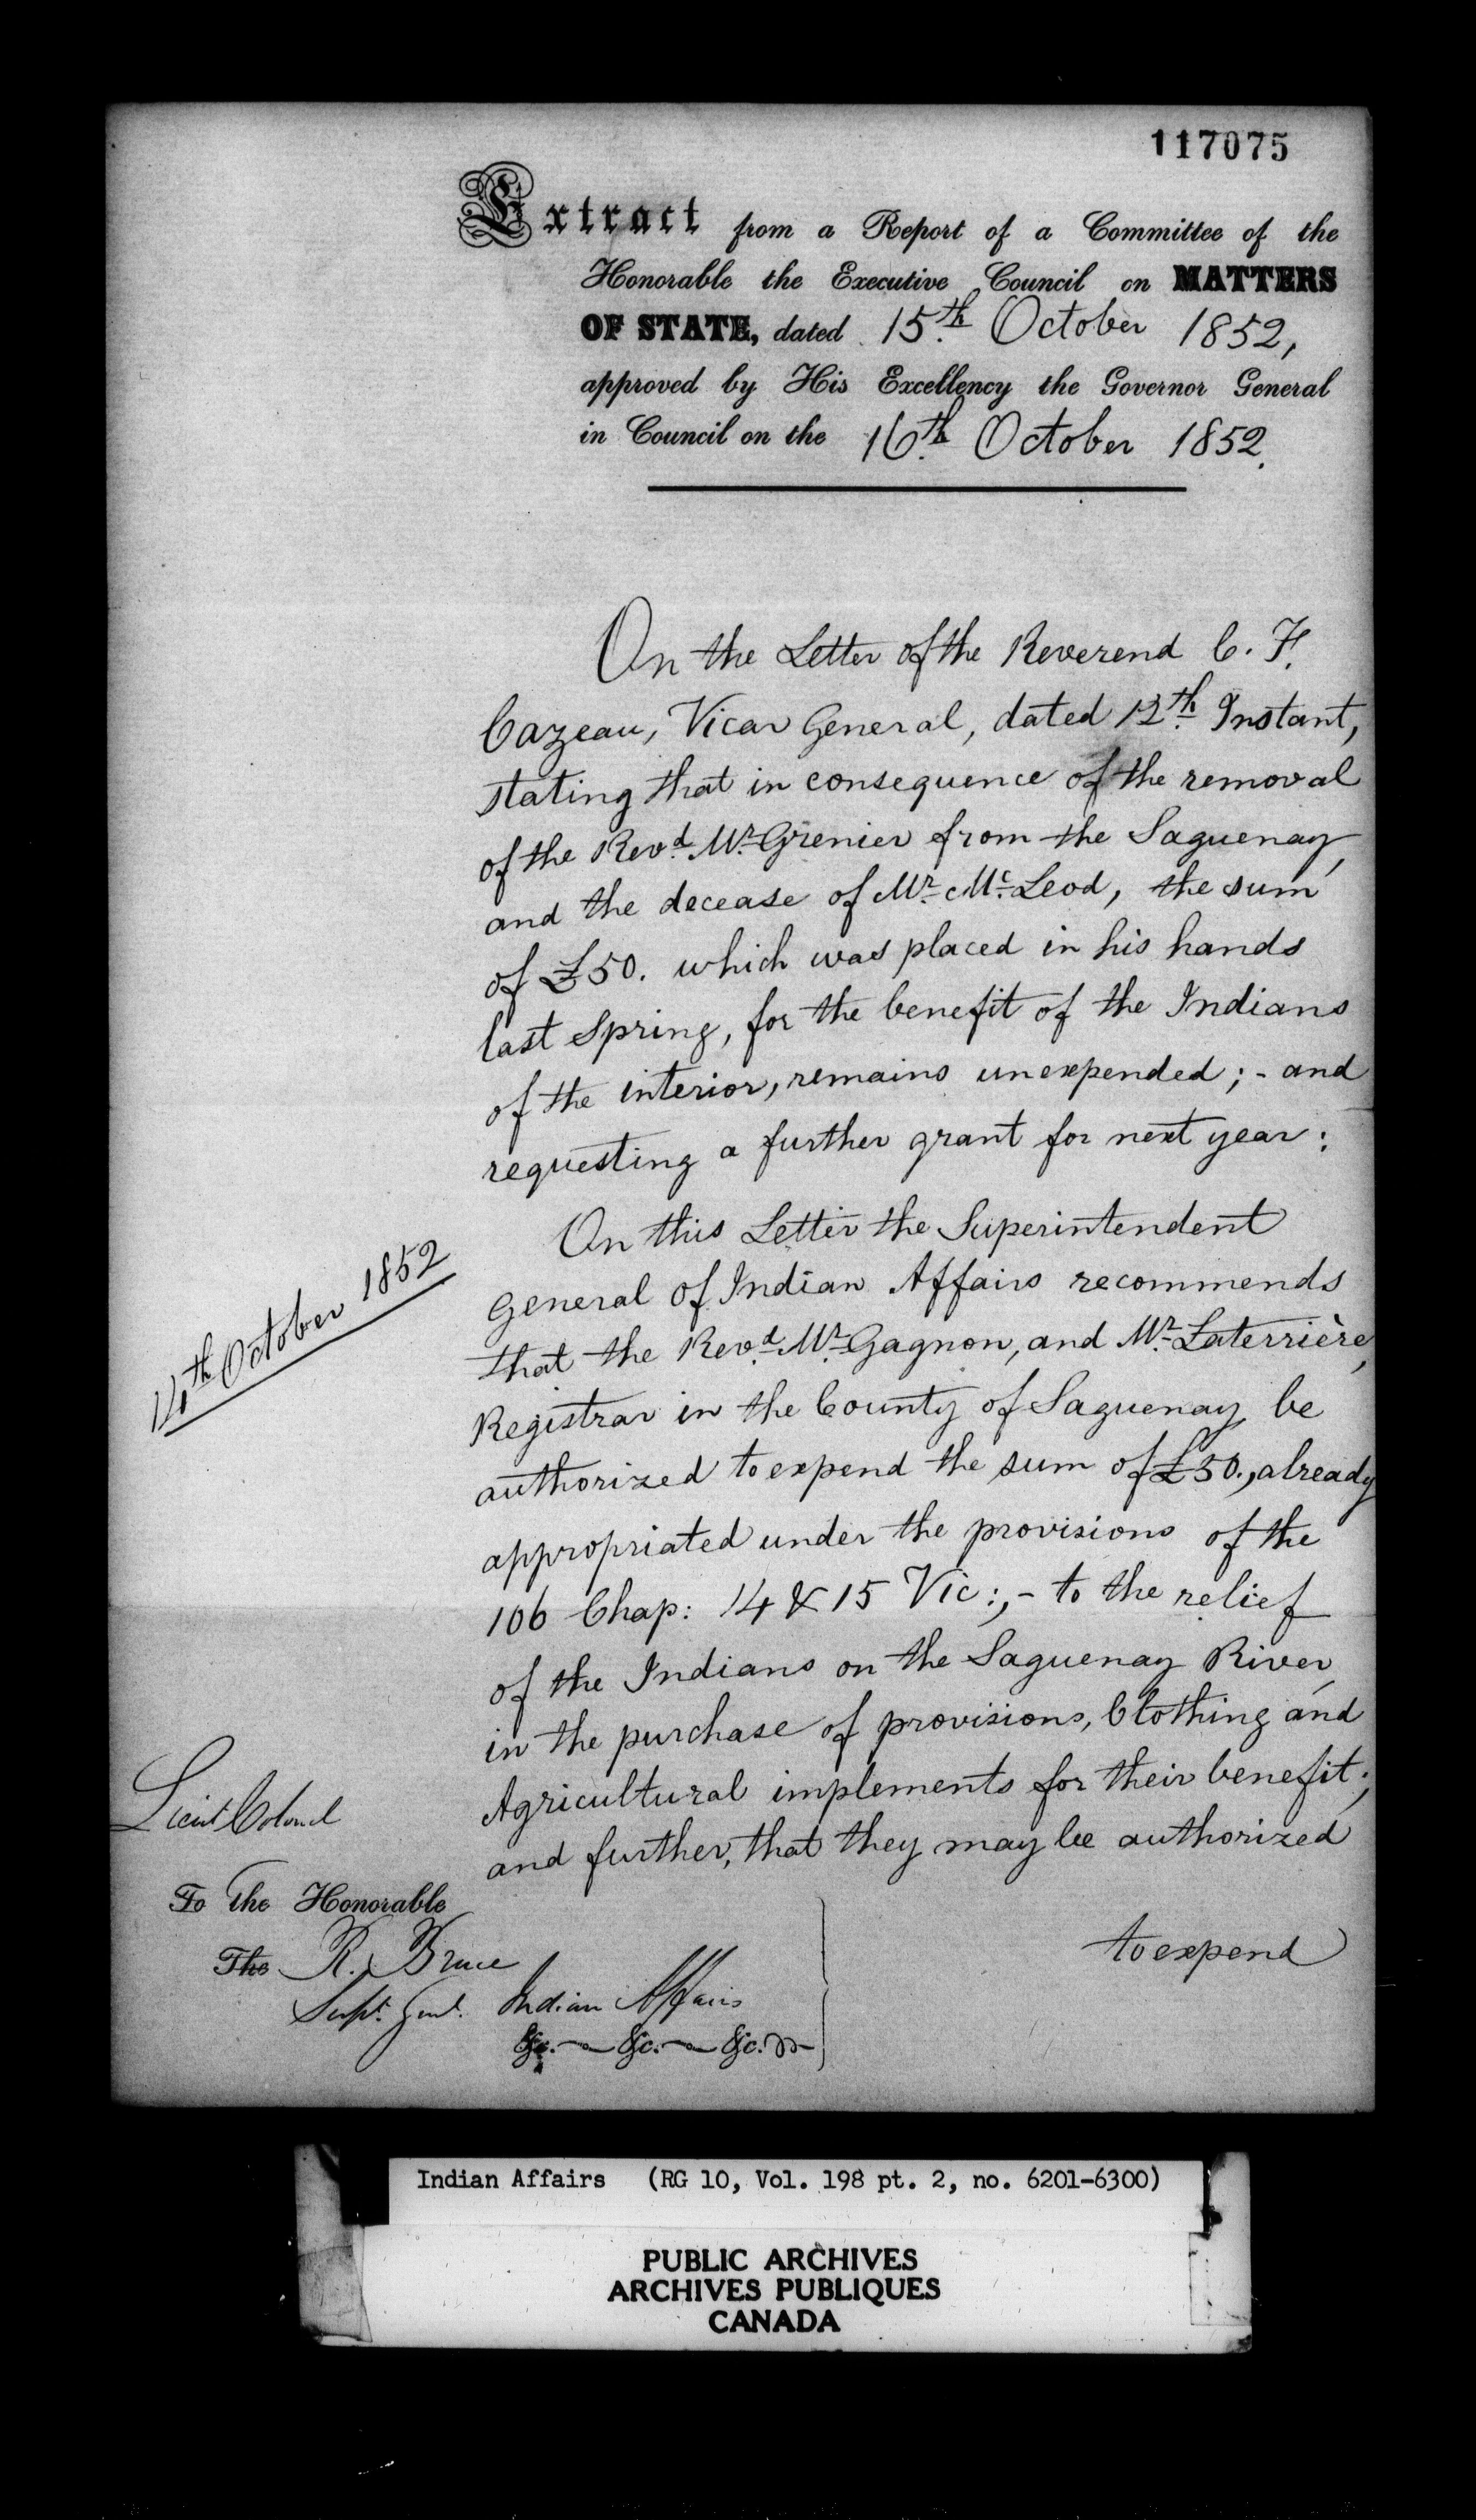 117075
Extract from a Report of a Committee of the
Honorable the Executive Council on MATTERS
OF STATE, dated 15th October 1852,
approved by His Excellency the Governor General
in Council on the 16th October 1852.
On the Letter of the Reverend C. F.
Cazeau, Vicar General, dated 12th Instant,
stating that in consequence of the removal
of the Revd. Mr. Grenier from the Saguenay,
and the decease of Mr. McLeod, the sum
of £50. which was placed in his hands
last Spring, for the benefit of the Indians
of the interior, remains unexpended; - and
requesting a further grant for next year:
On this Letter the Superintendent
General of Indian Affairs recommends
that the Revd. Mr. Gagnon, and Mr. Laterrière,
Registrar in the County of Saguenay, be
authorized to expend the sum of £50., already
appropriated under the provisions of the
106 Chap: 14 & 15 Vic:, - to the relief
of the Indians on the Saguenay River,
in the purchase of provisions, Clothing and
Agricultural implements for their benefit;
and further, that they may be authorized
to expend
14th October 1852
Lieut Colonel
To The Honorable
The R. Bruce
Supt. Genl. Indian Affairs
&c. &c. &c.
Indian Affairs (RG 10, Vol. 198 pt. 2, no. 6201-6300)
PUBLIC ARCHIVES
ARCHIVES PUBLIQUES
CANADA